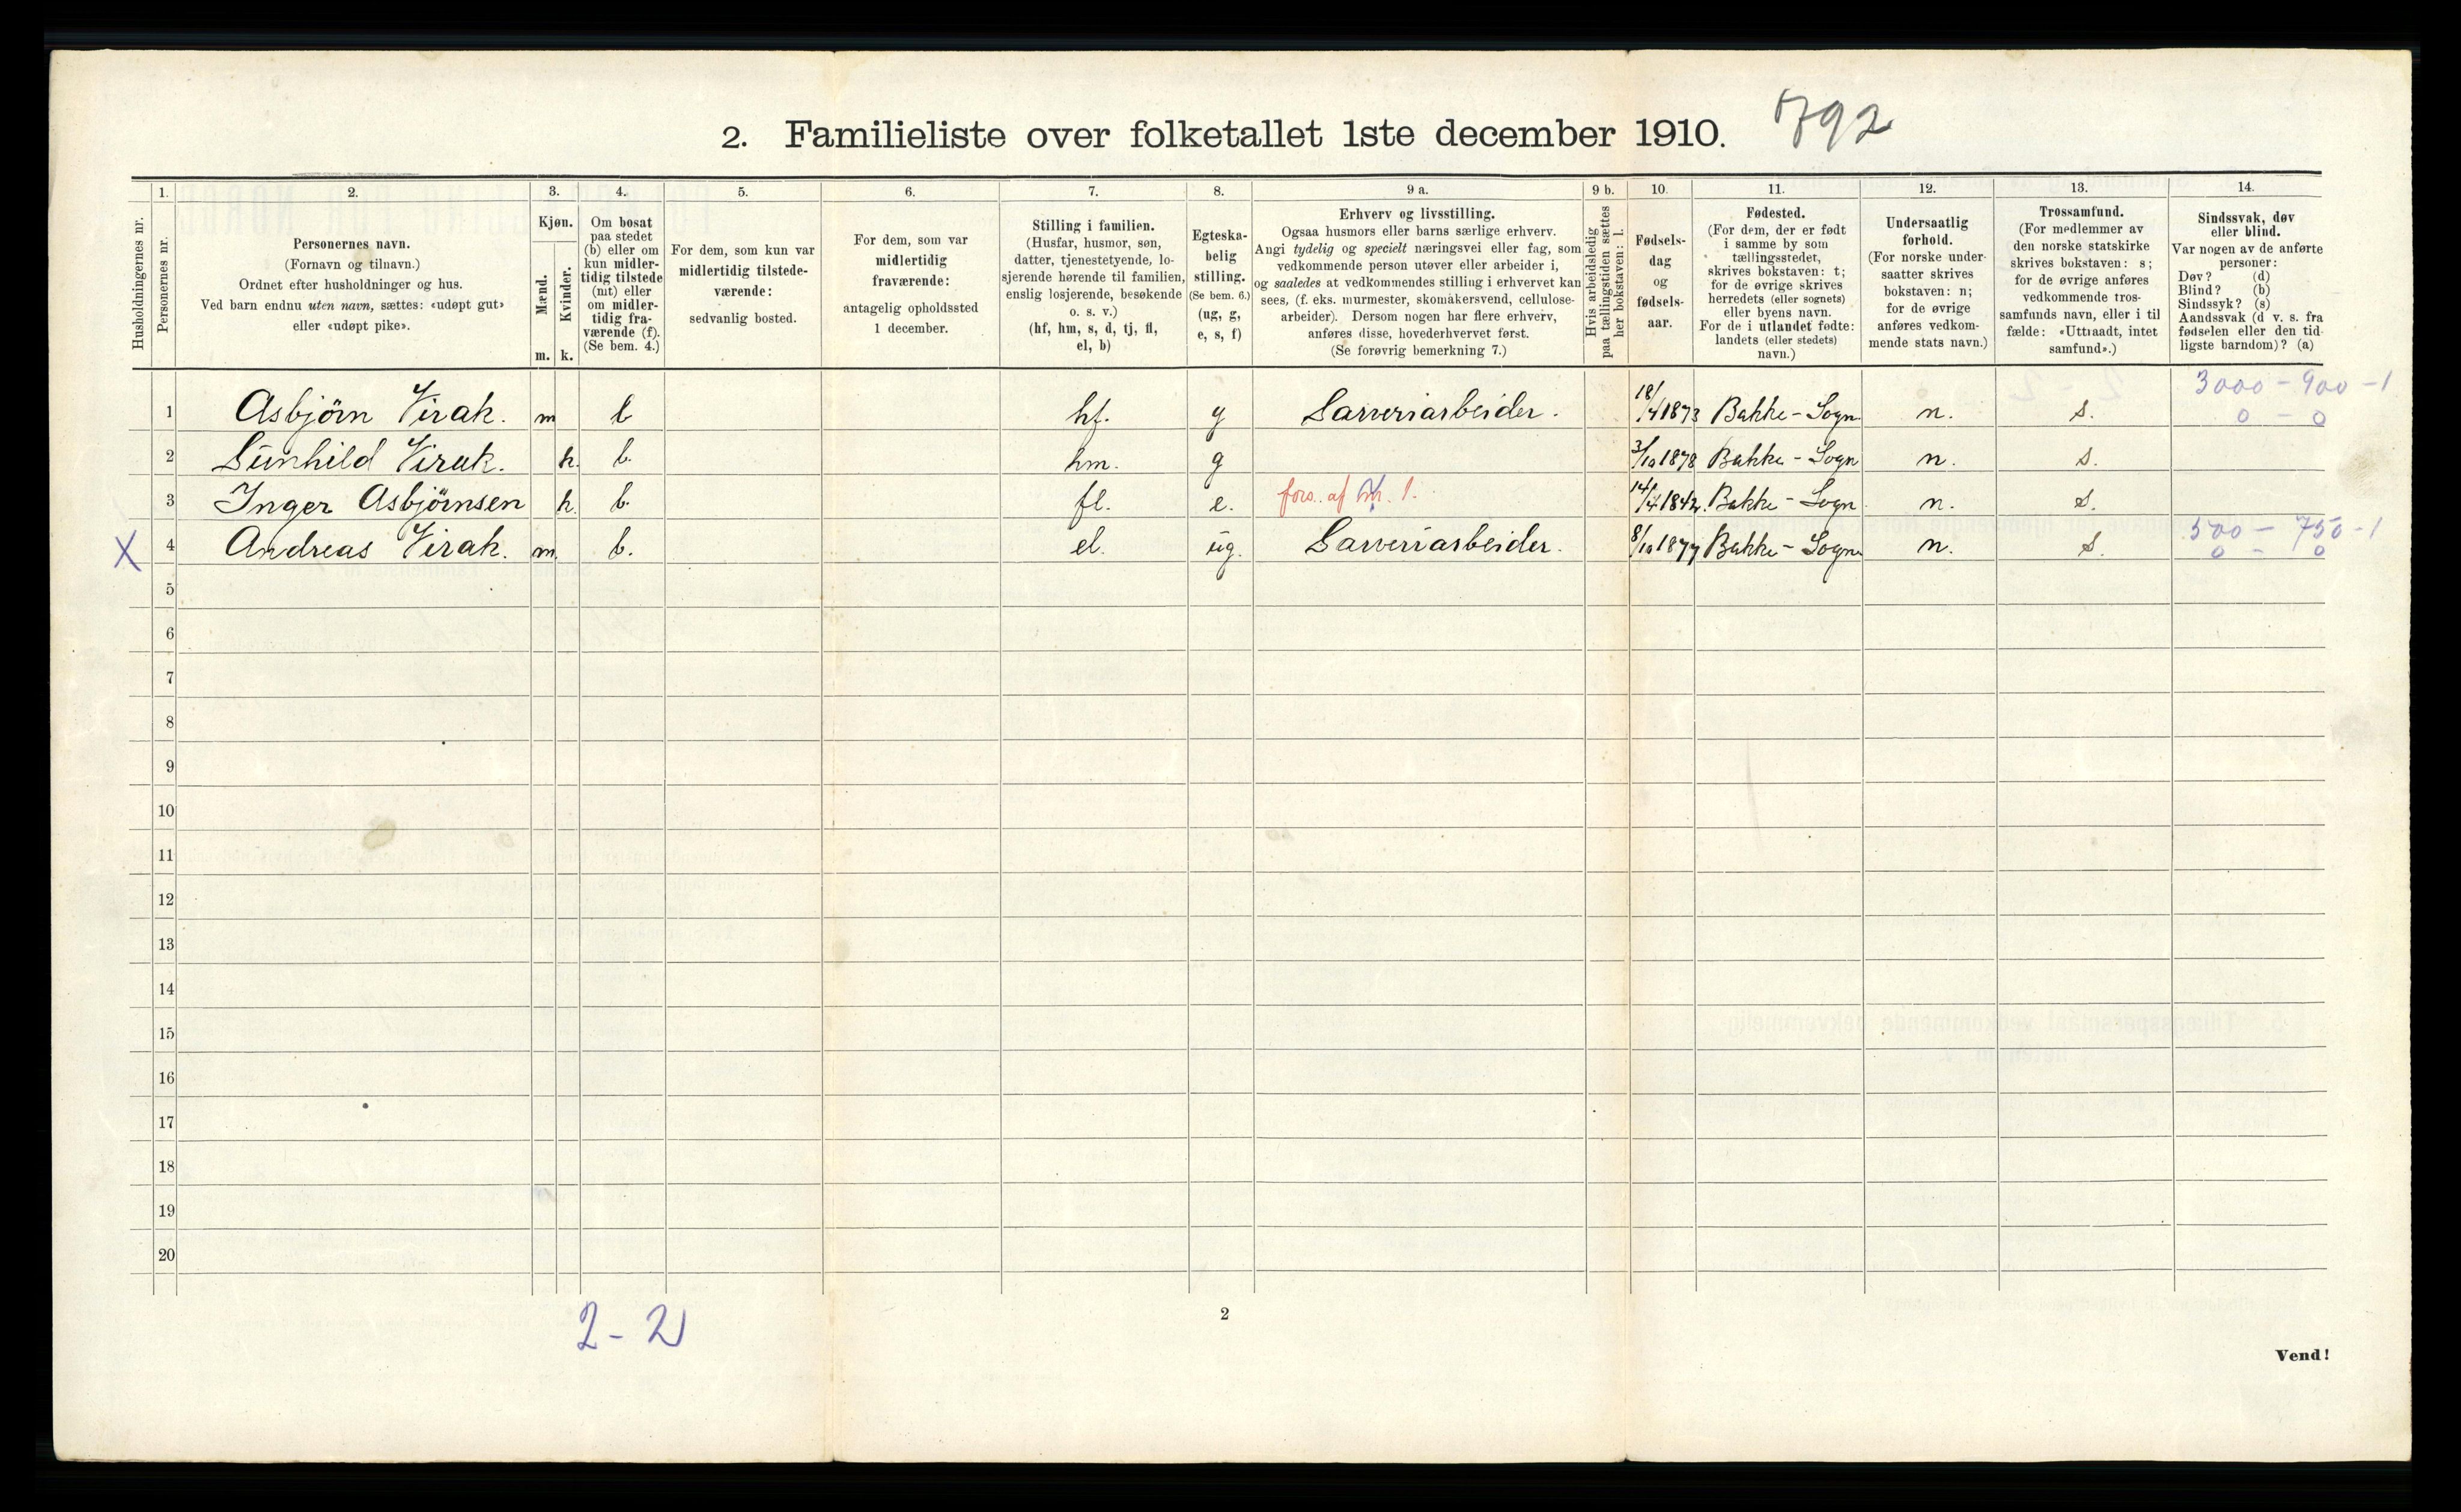 792
2. Familieliste over folketallet 1ste december 1910.
Husholdningernes nr.
1.
Personernes nr.
2.
Personernes navn.
(Fornavn og tilnavn.)
Ordnet efter husholdninger og hus.
Ved barn endnu uten navn, sættes: «udøpt gut»
eller «udøpt pike».
3.
Kjøn.
Mænd.
Kvinder.
m. k.
4.
Om bosat
paa stedet
(b) eller om
kun midler-
tidig tilstede
(mt) eller
om midler-
tidig fra-
værende (f).
(Se bem. 4.)
5.
For dem, som kun var
midlertidig tilstede-
værende:
sedvanlig bosted.
6.
For dem, som var
midlertidig
fraværende:
antagelig opholdssted
1 december.
7.
Stilling i familien.
(Husfar, husmor, søn,
datter, tjenestetyende, lo-
sjerende hørende til familien,
enslig losjerende, besøkende
o. s. v.)
(hf, hm, s, d, tj, fl,
el, b)
8.
Egteska-
belig
stilling.
(Se bem. 6.)
(ug, g,
e, s, f)
9 a.
Erhverv og livsstilling.
Ogsaa husmors eller barns særlige erhverv.
Angi tydelig og specielt næringsvei eller fag, som
vedkommende person utøver eller arbeider i,
og saaledes at vedkommendes stilling i erhvervet kan
sees, (f. eks. murmester, skomakersvend, cellulose-
arbeider). Dersom nogen har flere erhverv,
anføres disse, hovederhvervet først.
(Se forøvrig bemerkning 7.)
9 b.
Hvis arbeidsledig
paa tællingstiden sættes
her bokstaven: l.
10.
Fødsels-
dag
og
fødsels-
aar.
11.
Fødested.
(For dem, der er født
i samme by som
tællingsstedet,
skrives bokstaven: t;
for de øvrige skrives
herredets (eller sognets)
eller byens navn.
For de i utlandet fødte:
landets (eller stedets)
navn.)
12.
Undersaatlig
forhold.
(For norske under-
saatter skrives
bokstaven: n;
for de øvrige
anføres vedkom-
mende stats navn.)
13.
Trossamfund.
(For medlemmer av
den norske statskirke
skrives bokstaven: s;
for de øvrige anføres
vedkommende tros-
samfunds navn, eller i til
fælde: «Uttraadt, intet
samfund».)
14.
Sindssvak, døv
eller blind.
Var nogen av de anførte
personer:
Døv? (d)
Blind? (b)
Sindssyk? (s)
Aandssvak (d v. s. fra
fødselen eller den tid-
ligste barndom)? (a)
3000 - 900 - 1
1 Asbjörn Virak. m b hf. g Garveriarbeider. 18/4 1873 Bakke - Sogn n. s. 0 - 0
2 Gunhild Virak. k. b. hm. g 3/10 1878 Bakke - Sogn n. s.
3 Inger Asbjörnsen k. b. fl. e. fors. af nr. 1. 14/4 1842. Bakke - Sogn n. s.
500 - 750 - 1
X 4 Andreas Virak. m. b. el. ug. Garveriarbeider. 8/10 1877 Bakke - Sogn n. s. 0 - 0
5
6
7
8
9
10
11
12
13
14
15
16
17
18
19
20
2 - 2
2
Vend!